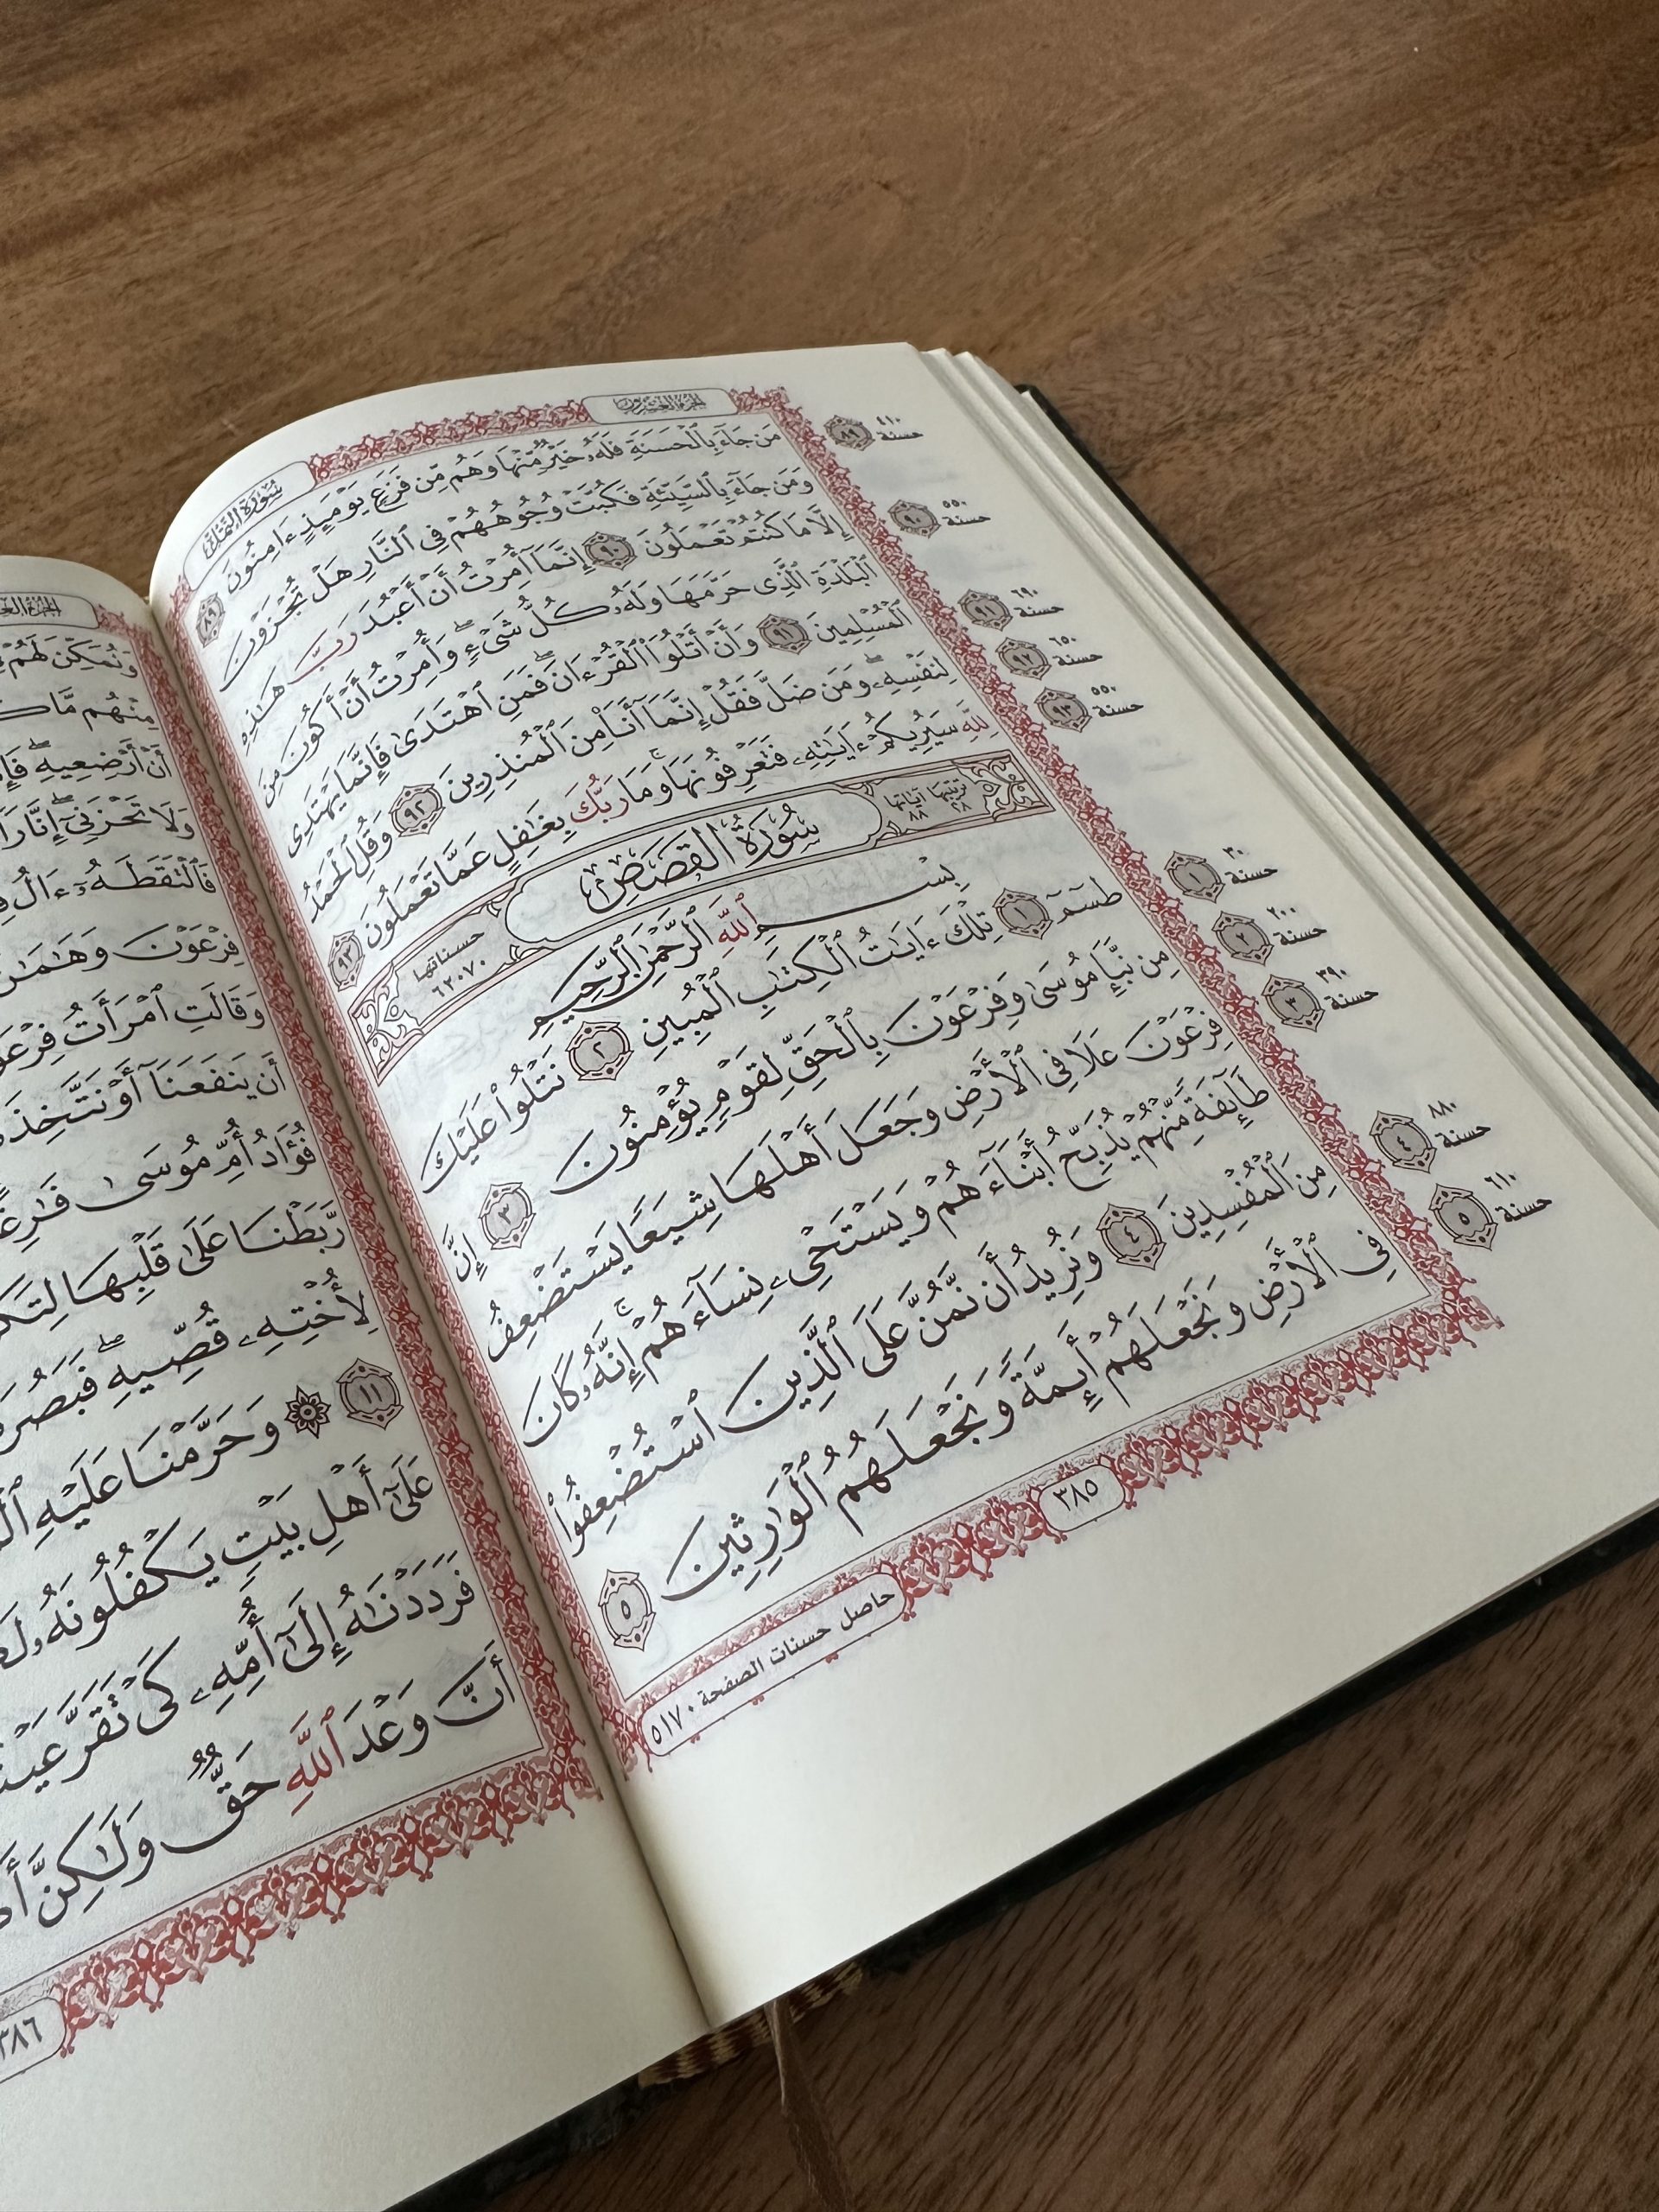 سُورَةُ النَّمْلِ
الجُزْءُ العِشْرُونَ
مَن جَآءَ بِٱلْحَسَنَةِ فَلَهُۥ خَيْرٌ مِّنْهَا وَهُم مِّن فَزَعٍ يَوْمَئِذٍ ءَامِنُونَ ٨٩
وَمَن جَآءَ بِٱلسَّيِّئَةِ فَكُبَّتْ وُجُوهُهُمْ فِي ٱلنَّارِ هَلْ تُجْزَوْنَ
إِلَّا مَا كُنتُمْ تَعْمَلُونَ ٩٠ إِنَّمَآ أُمِرْتُ أَنْ أَعْبُدَ رَبَّ هَٰذِهِ
ٱلْبَلْدَةِ ٱلَّذِى حَرَّمَهَا وَلَهُۥ كُلُّ شَىْءٍ ۖ وَأُمِرْتُ أَنْ أَكُونَ مِنَ
ٱلْمُسْلِمِينَ ٩١ وَأَنْ أَتْلُوَا۟ ٱلْقُرْءَانَ ۖ فَمَنِ ٱهْتَدَىٰ فَإِنَّمَا يَهْتَدِى
لِنَفْسِهِۦ ۖ وَمَن ضَلَّ فَقُلْ إِنَّمَآ أَنَا۠ مِنَ ٱلْمُنذِرِينَ ٩٢ وَقُلِ ٱلْحَمْدُ
لِلَّهِ سَيُرِيكُمْ ءَايَٰتِهِۦ فَتَعْرِفُونَهَا ۚ وَمَا رَبُّكَ بِغَٰفِلٍ عَمَّا تَعْمَلُونَ ٩٣
ترتيبها ٢٨ آياتها ٨٨
سُورَةُ القَصَصِ
حسناتها ٦٢٠٧٠
بِسْمِ ٱللَّهِ ٱلرَّحْمَٰنِ ٱلرَّحِيمِ
طسٓمٓ ١ تِلْكَ ءَايَٰتُ ٱلْكِتَٰبِ ٱلْمُبِينِ ٢ نَتْلُوا۟ عَلَيْكَ
مِن نَّبَإِ مُوسَىٰ وَفِرْعَوْنَ بِٱلْحَقِّ لِقَوْمٍ يُؤْمِنُونَ ٣ إِنَّ
فِرْعَوْنَ عَلَا فِي ٱلْأَرْضِ وَجَعَلَ أَهْلَهَا شِيَعًا يَسْتَضْعِفُ
طَآئِفَةً مِّنْهُمْ يُذَبِّحُ أَبْنَآءَهُمْ وَيَسْتَحْىِۦ نِسَآءَهُمْ ۚ إِنَّهُۥ كَانَ
مِنَ ٱلْمُفْسِدِينَ ٤ وَنُرِيدُ أَن نَّمُنَّ عَلَى ٱلَّذِينَ ٱسْتُضْعِفُوا۟
فِي ٱلْأَرْضِ وَنَجْعَلَهُمْ أَئِمَّةً وَنَجْعَلَهُمُ ٱلْوَٰرِثِينَ ٥
٣٨٥
حاصل حسنات الصفحة ٥١٧٠
٨٩ ٤١٠ حسنة
٩٠ ٥٥٠ حسنة
٩١ ٦٩٠ حسنة
٩٢ ٦٥٠ حسنة
٩٣ ٥٥٠ حسنة
١ ٣٠ حسنة
٢ ٢٠٠ حسنة
٣ ٣٩٠ حسنة
٤ ٨٨٠ حسنة
٥ ٦١٠ حسنة
وَنُمَكِّنَ لَهُمْ
مِنْهُم مَّا
أَنْ أَرْضِعِيهِ ۖ
وَلَا تَحْزَنِىٓ ۖ إِنَّا
فَٱلْتَقَطَهُۥٓ ءَالُ
فِرْعَوْنَ وَهَٰمَٰنَ
وَقَالَتِ ٱمْرَأَتُ فِرْعَوْنَ
أَن يَنفَعَنَآ أَوْ نَتَّخِذَهُۥ
فُؤَادُ أُمِّ مُوسَىٰ فَٰرِغًا
رَّبَطْنَا عَلَىٰ قَلْبِهَا
لِأُخْتِهِۦ قُصِّيهِ ۖ فَبَصُرَتْ
١١ ۞ وَحَرَّمْنَا عَلَيْهِ
عَلَىٰٓ أَهْلِ بَيْتٍ يَكْفُلُونَهُۥ
فَرَدَدْنَٰهُ إِلَىٰٓ أُمِّهِۦ كَىْ تَقَرَّ
أَنَّ وَعْدَ ٱللَّهِ حَقٌّ وَلَٰكِنَّ
٣٨٦